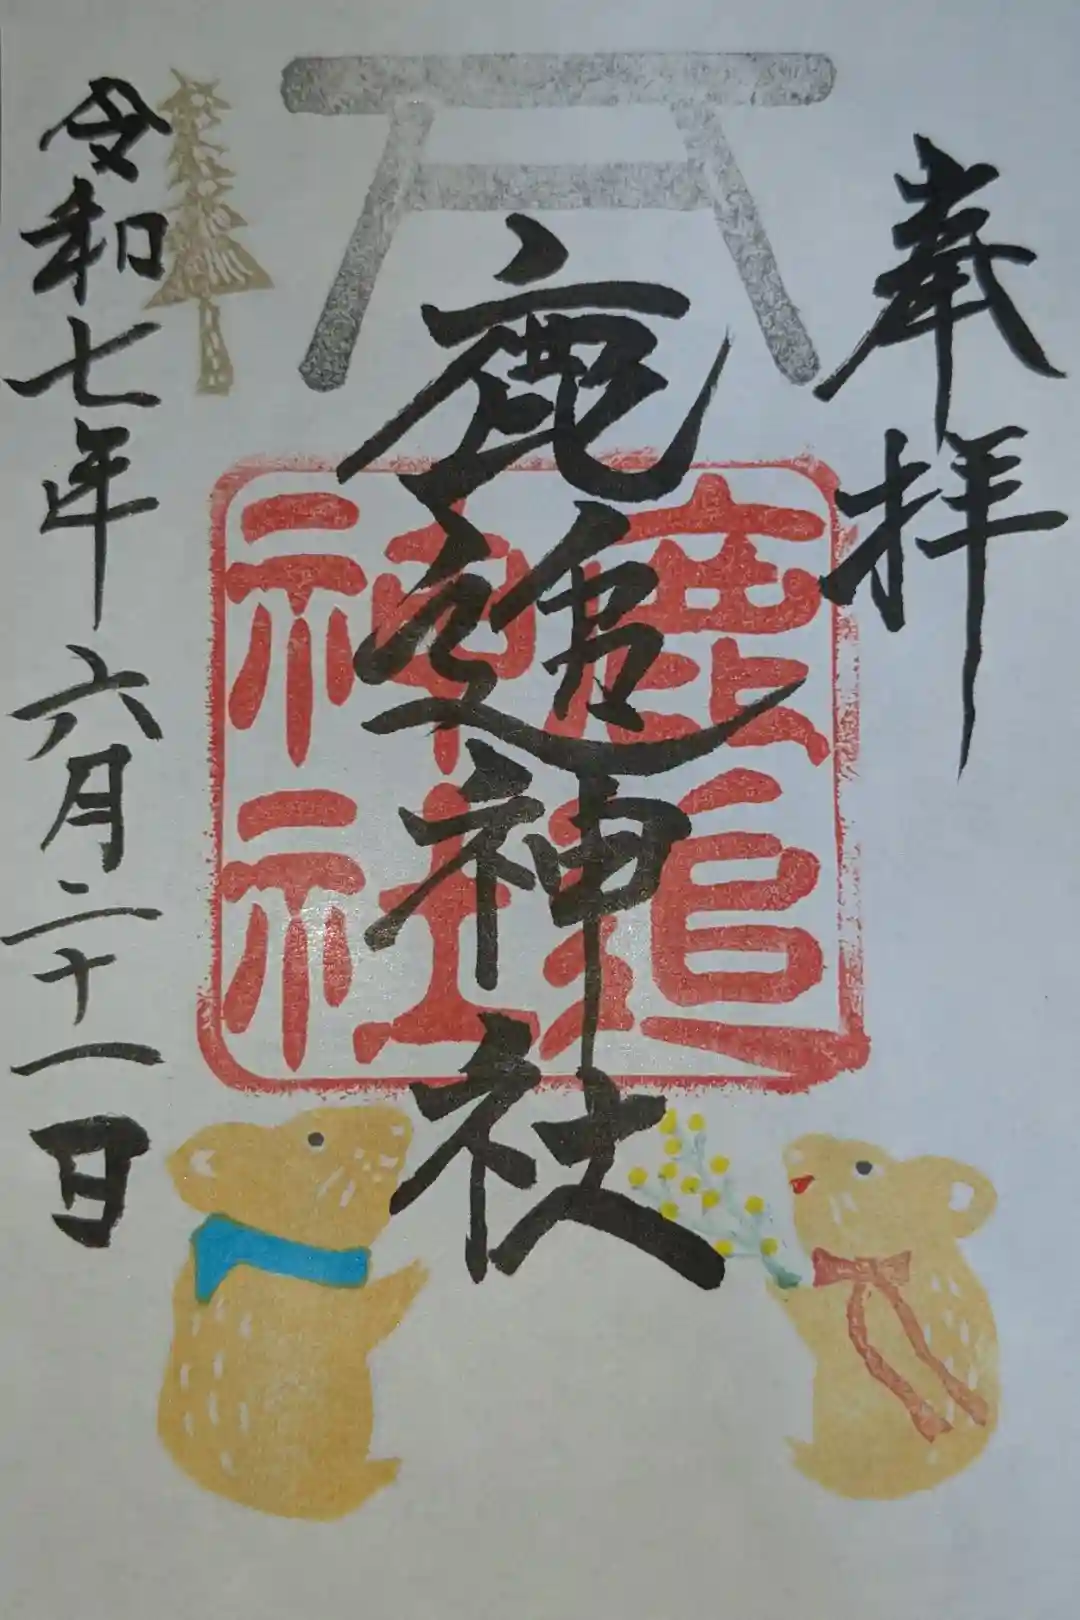 奉拝
鹿追神社
鹿追
神社
令和七年六月二十一日